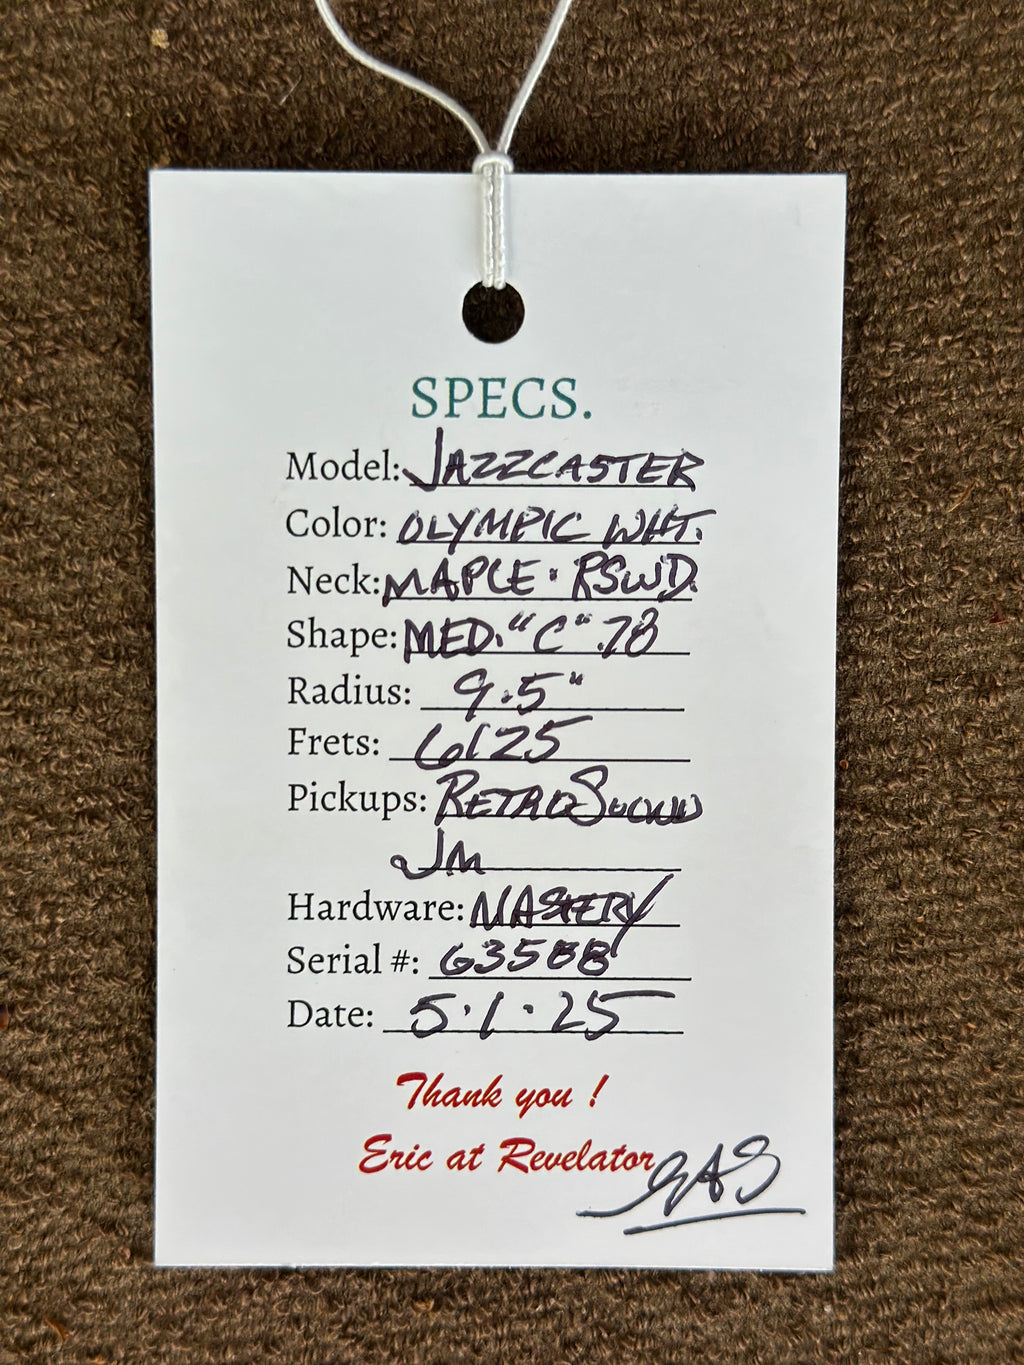 SPECS.
Model: JAZZCASTER
Color: OLYMPIC WHT.
Neck: MAPLE · RSWD.
Shape: MED. "C" .78
Radius: 9.5"
Frets: 6125
Pickups: RETROSOUND
JM
Hardware: MASTERY
Serial #: 63588
Date: 5·1·25
Thank you !
Eric at Revelator